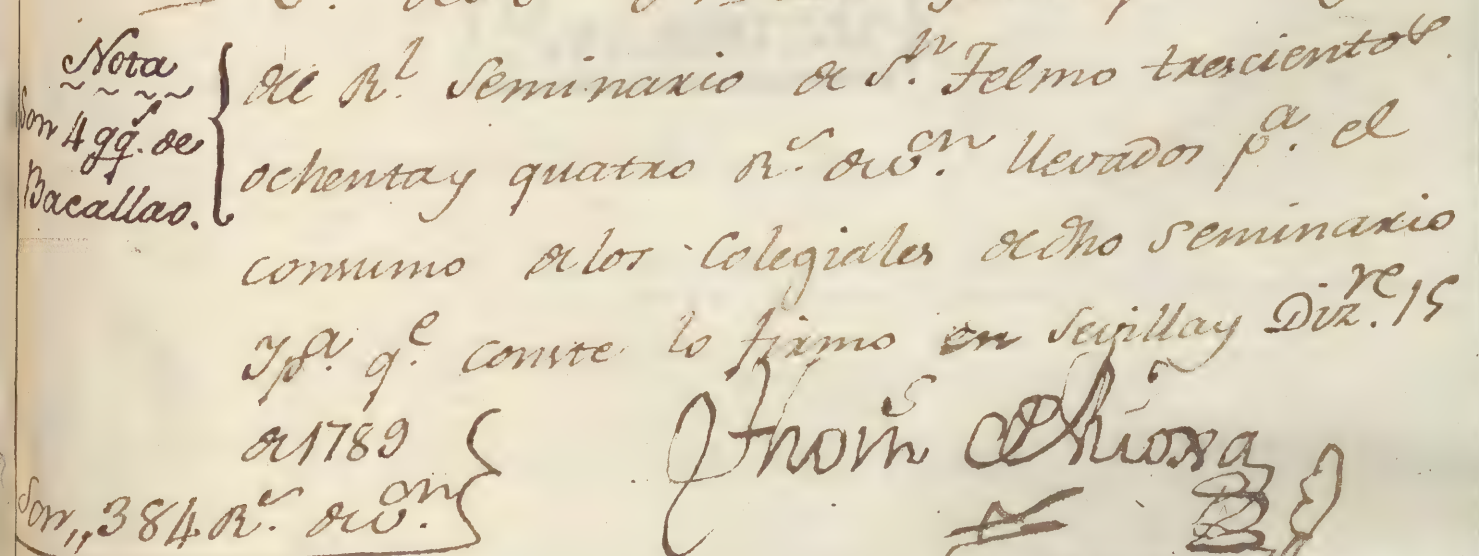 Nota
Son 4 qq.s de
Bacallao.
del R.l Seminario de S.n Telmo trescientos
ochenta y quatro R.s de v.on llevados p.a el
consumo de los Colegiales de dho Seminario
Y p.a q.e conste lo firmo en Sevilla y Diz.re 15
de 1789
Son,, 384 R.s de v.on